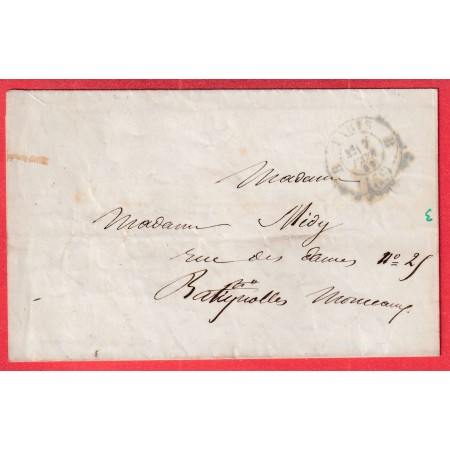 PARIS
7
Madame
Madame Midy
rue des dames nº 25
Batignolles Monceaux
3